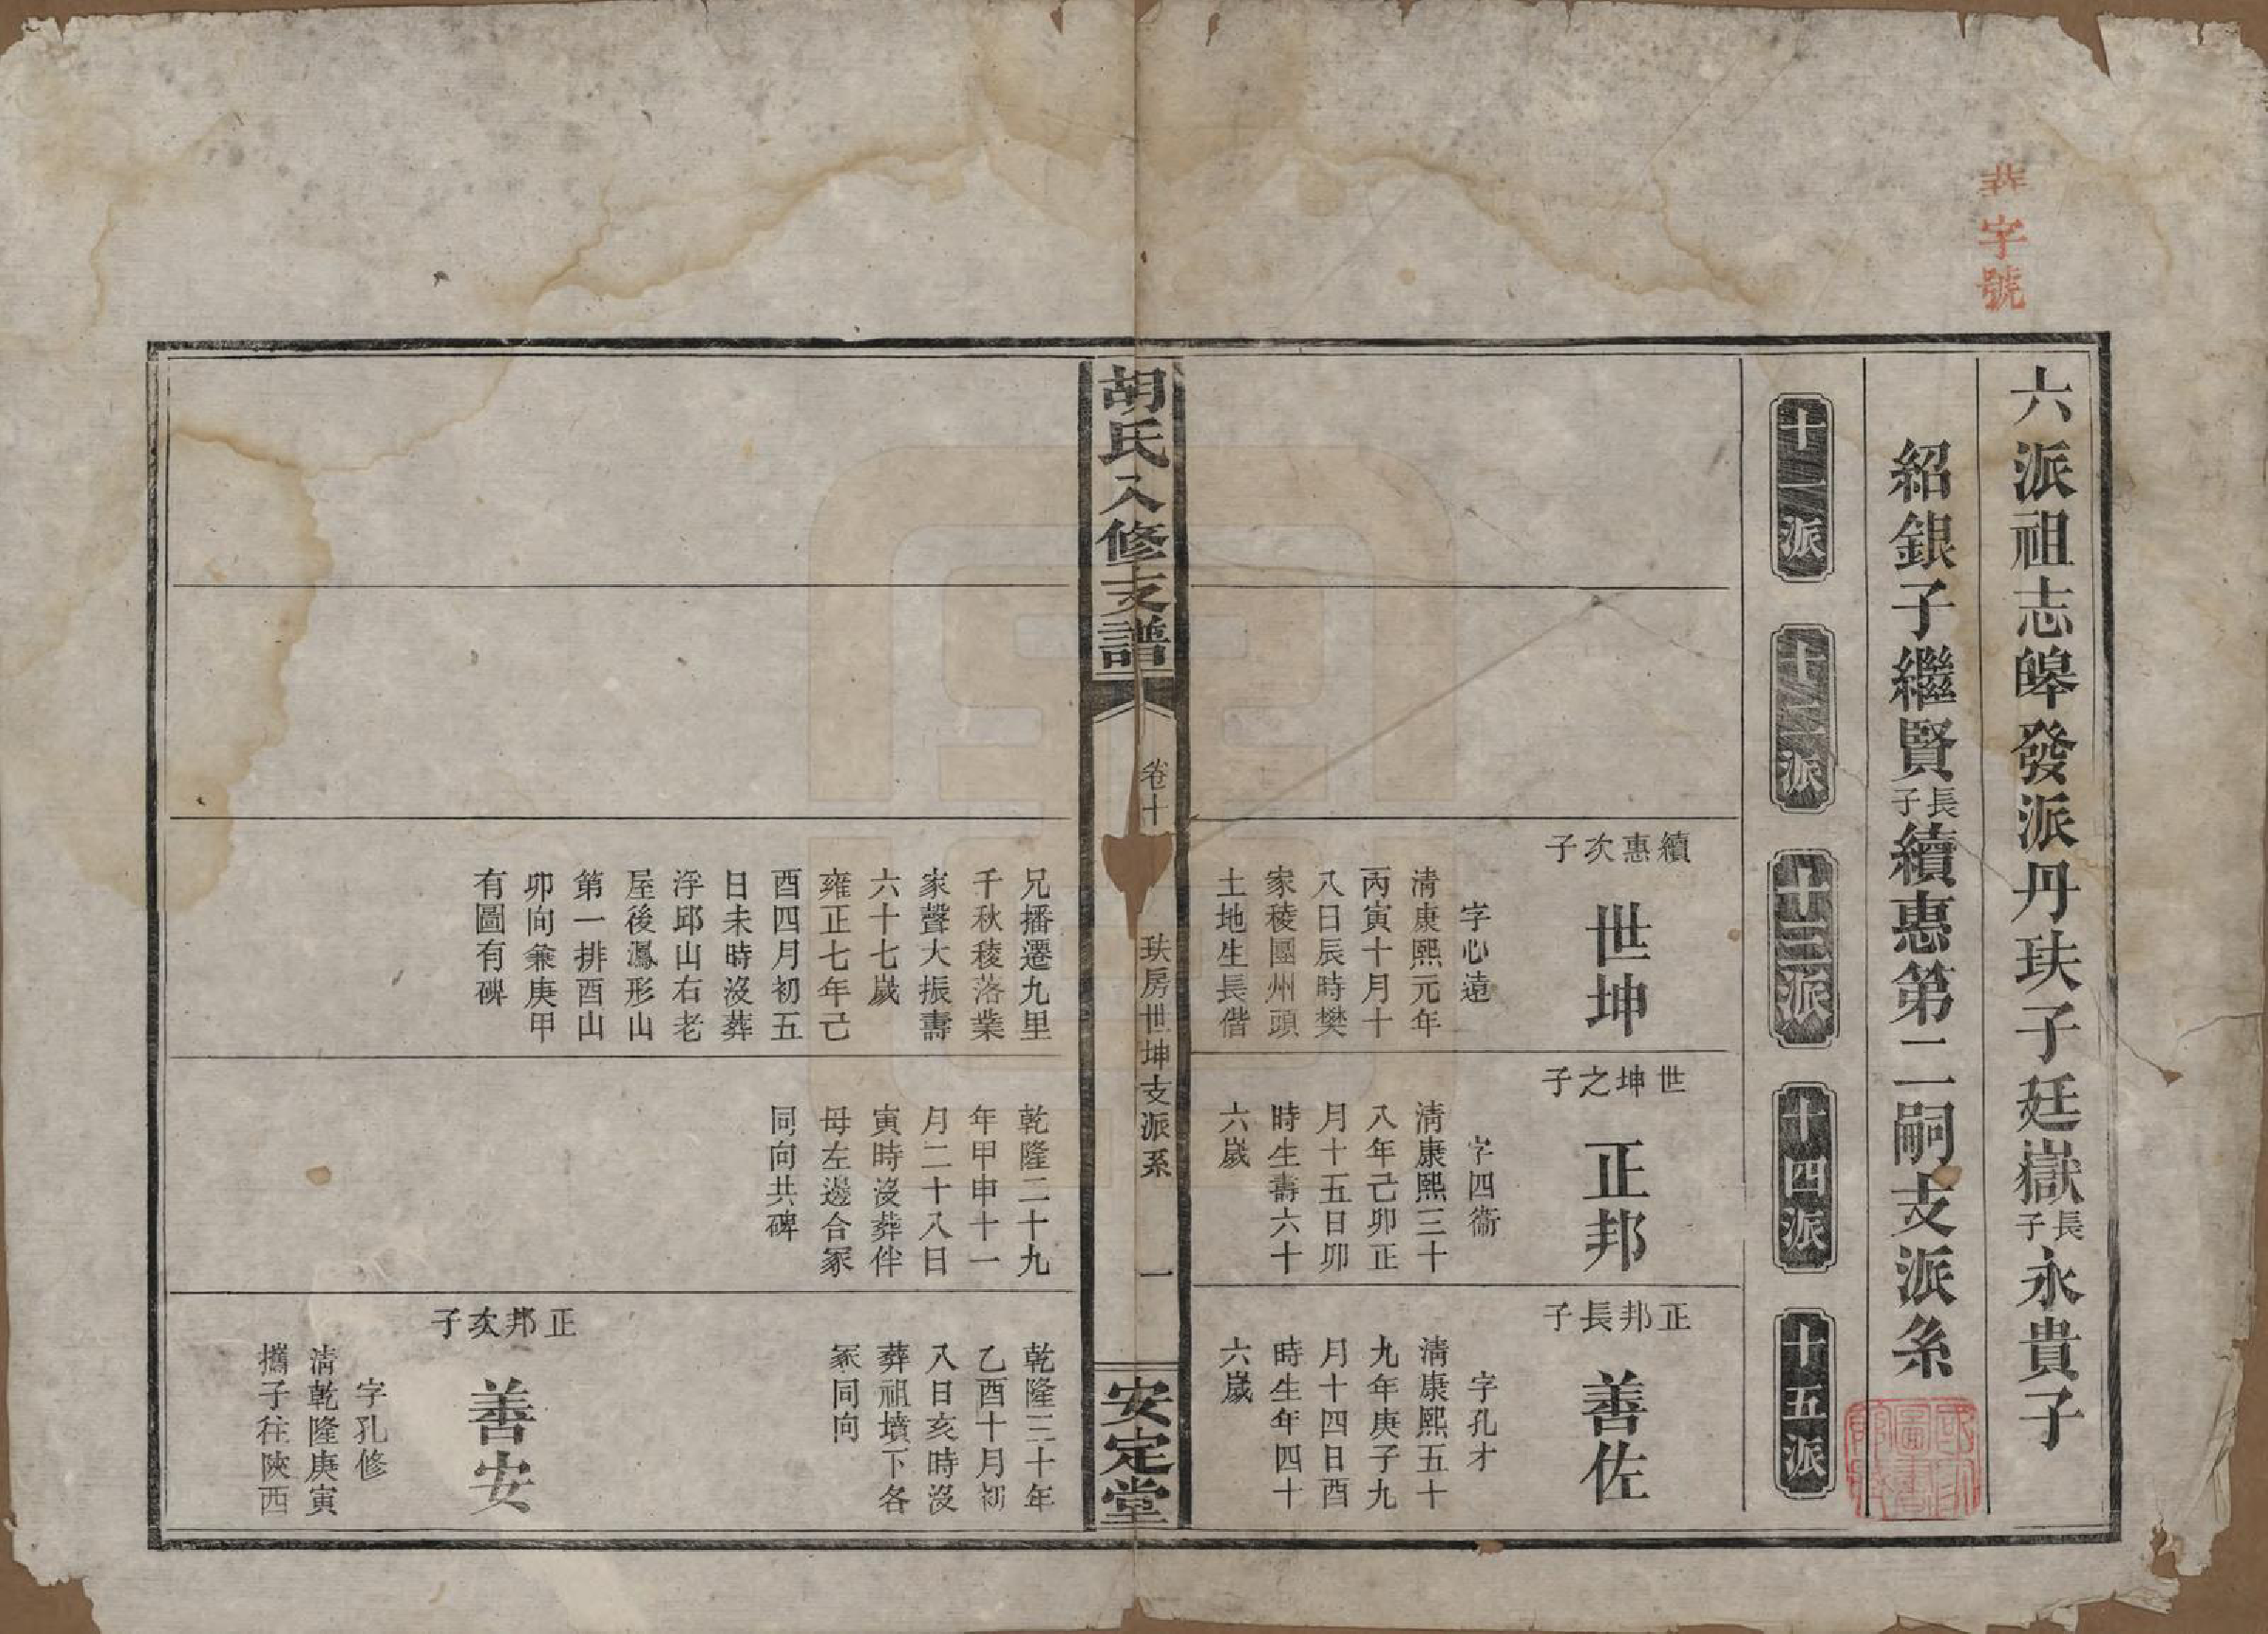 字號
六派祖志皞發派丹玞子廷嶽長子永貴子
紹銀子繼賢長子續惠第二嗣支派系
十一派
十二派
十三派
十四派
十五派
續惠次子
世坤
字心遠
清康熙元年
丙寅十月十
八日辰時樊
家稜團州頭
土地生長偕
世坤之子
正邦
字四衞
清康熙三十
八年己卯正
月十五日卯
時生壽六十
六嵗
正邦長子
善佐
字孔才
清康熙五十
九年庚子九
月十四日酉
時生年四十
六嵗
胡氏入修支譜
卷十
玞房世坤支派系
一
安定堂
兄播遷九里
千秋稜落業
家聲大振壽
六十七嵗
雍正七年己
酉四月初五
日未時沒葬
浮邱山右老
屋後鳳形山
第一排酉山
卯向兼庚甲
有圖有碑
乾隆二十九
年甲申十一
月二十八日
寅時沒葬伴
母左邊合冢
同向共碑
乾隆三十年
乙酉十月初
八日亥時沒
葬祖墳下各
冢同向
正邦次子
善安
字孔修
清乾隆庚寅
攜子往陝西